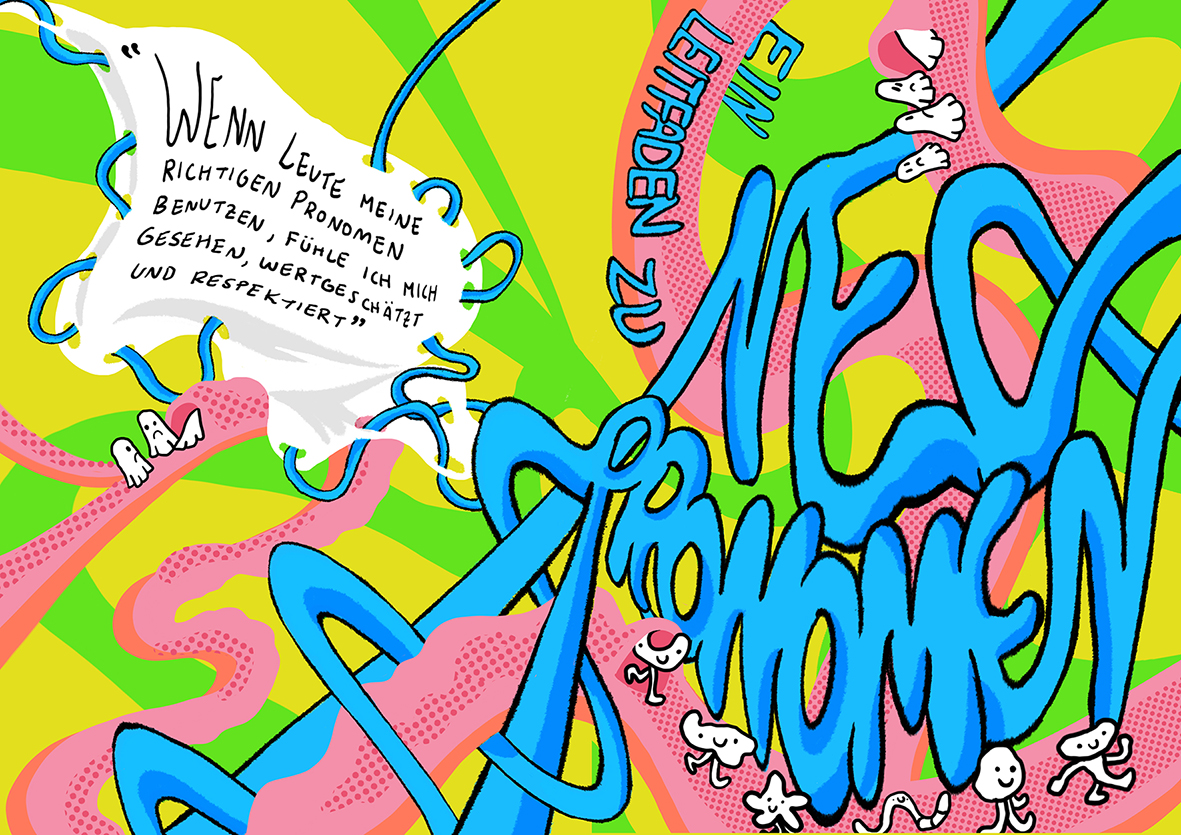 “WENN LEUTE MEINE
RICHTIGEN PRONOMEN
BENUTZEN, FÜHLE ICH MICH
GESEHEN, WERTGESCHÄTZT
UND RESPEKTIERT”
EIN
LEITFADEN ZU
NEO
PRONOMEN